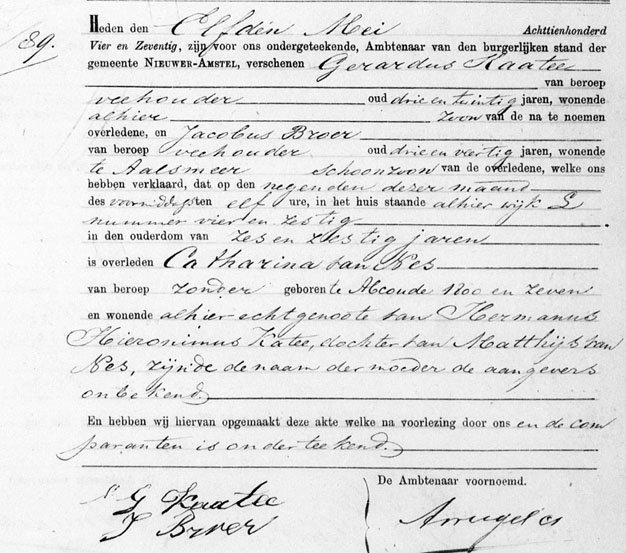 89.
Heden den Elfden Mei Achttienhonderd
Vier en Zeventig, zijn voor ons ondergeteekende, Ambtenaar van den burgerlijken stand der
gemeente NIEUWER-AMSTEL, verschenen Gerardus Kaatee
van beroep
veehouder oud drie en twintig jaren, wonende
alhier Zoon van de na te noemen
overledene, en Jacobus Broer
van beroep veehouder oud drie en veertig jaren, wonende
te Aalsmeer schoonzoon van de overledene, welke ons
hebben verklaard, dat op den negenden dezer maand
des voormiddags ten elf ure, in het huis staande alhier wijk
nummer vier en zestig
in den ouderdom van zes en zestig jaren
is overleden Catharina van Nes
van beroep zonder geboren te Abcoude en zeven
en wonende alhier echtgenoote van Hermanus
Hieronimus Katee, dochter van Matthijs van
Nes, zijnde de naam der moeder de aangevers
onbekend.
En hebben wij hiervan opgemaakt deze akte welke na voorlezing door ons en de com
paranten is onderteekend.
De Ambtenaar voornoemd.
G Kaatee
J Broer